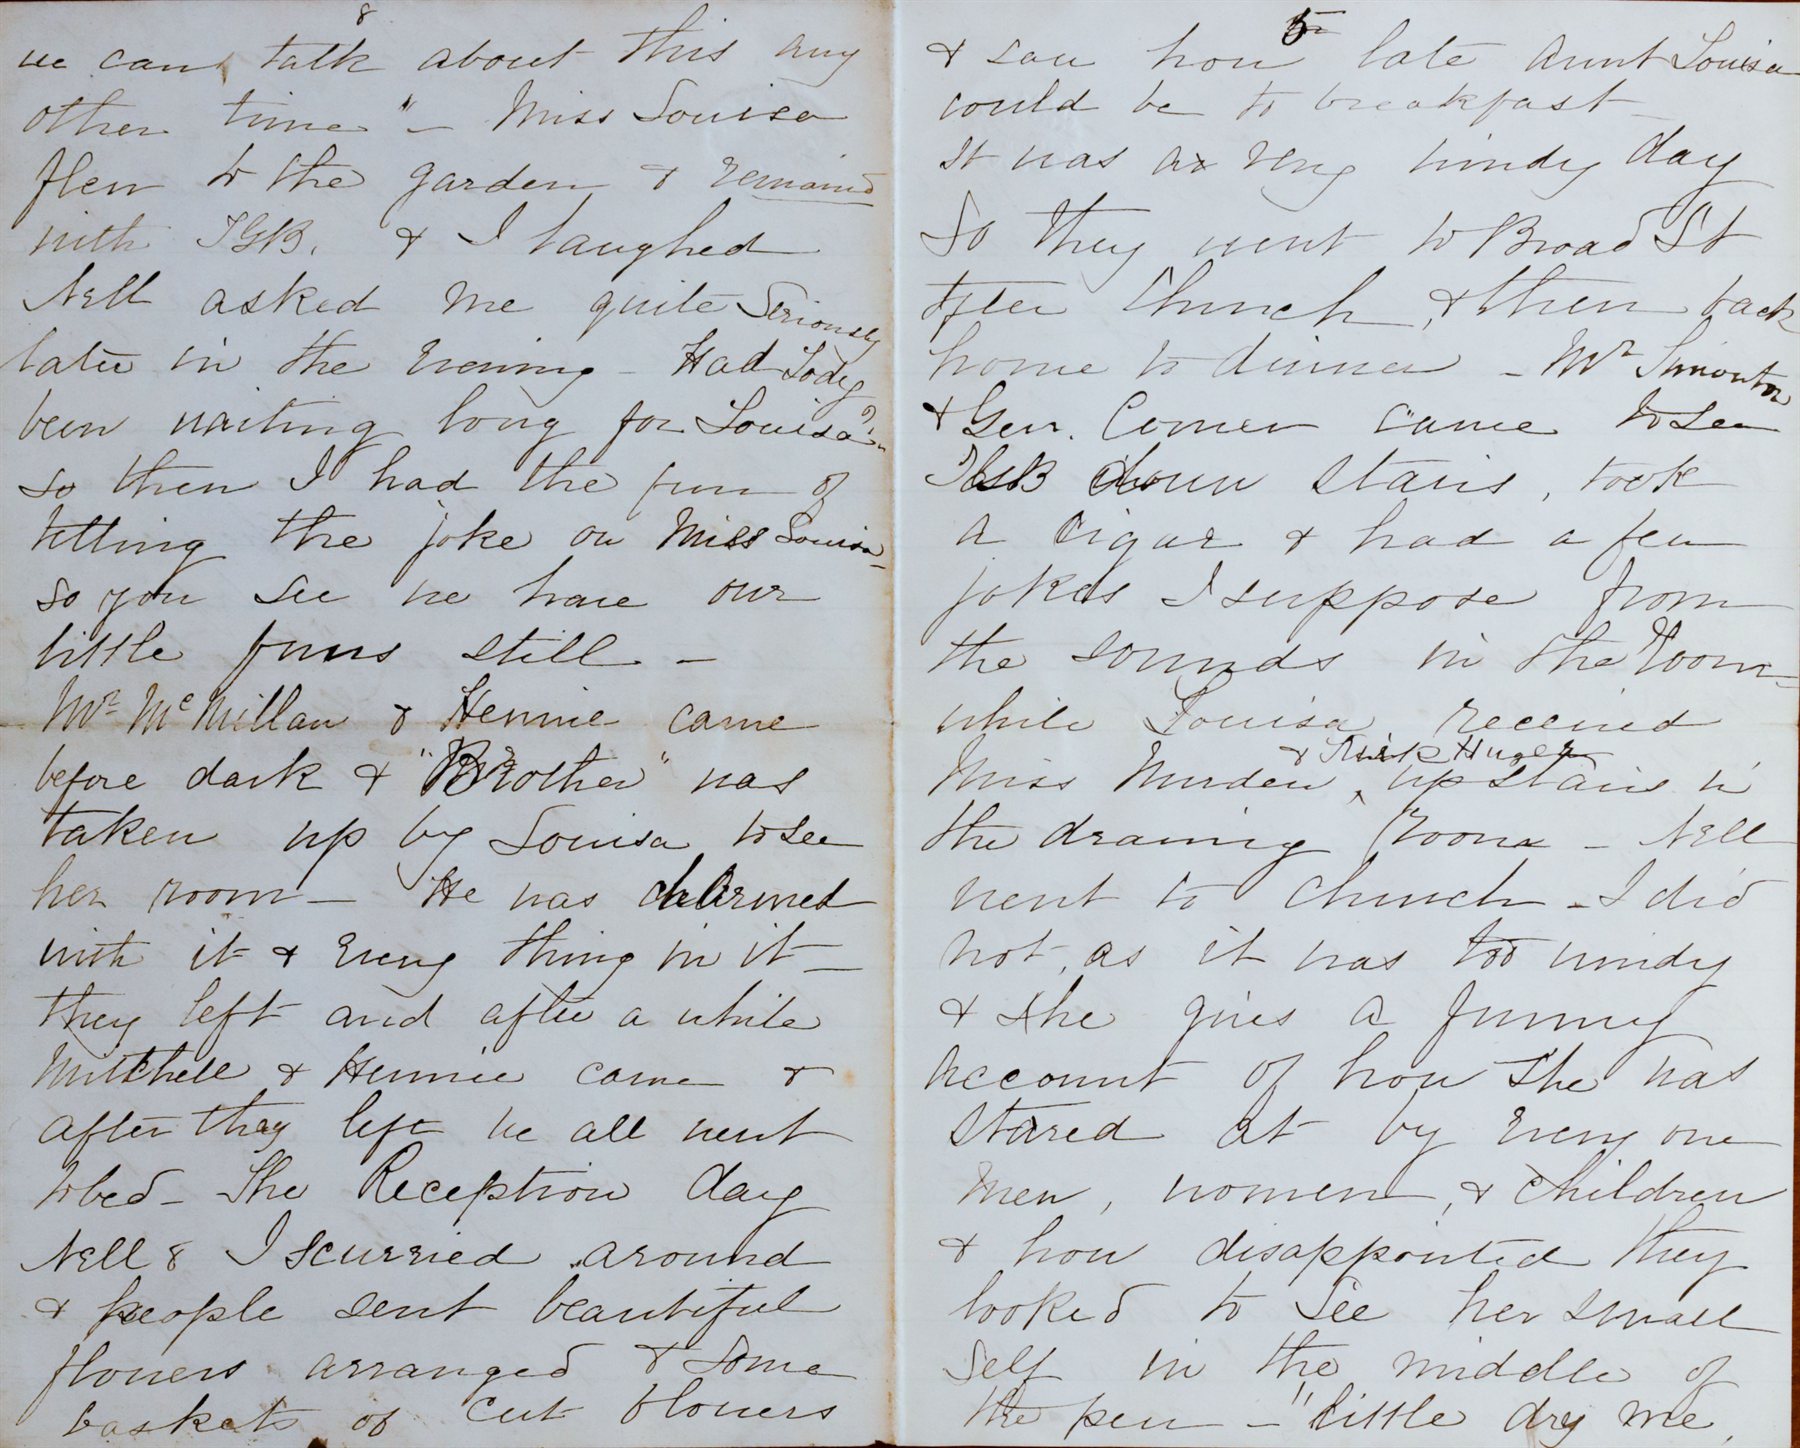 8
we can talk about this any
other time" – Miss Louisa
flew to the garden & remained
with TGB. & I laughed
Nell asked me quite seriously
later in the evening – Had Tody
been waiting long for Louisa?"
so then I had the fun of
telling the joke on Miss Louisa –
so you see we have our
little funs still –
Mr. McMillan & Hennie came
before dark & "Brother" was
taken up by Louisa to see
her room – He was charmed
with it & every thing in it –
they left and after a while
Mitchell & Hennie came &
after they left we all went
to bed – The Reception day
Nell & I scurried around
& people sent beautiful
flowers arranged & some
baskets of cut flowers
5
& saw how late Aunt Louisa
could be to breakfast –
It was a very windy day
So they went to Broad St
after Church, & then back
home to dinner – Mr Simonton
& Gen. Comer came to see
TGB down stairs, took
a cigar & had a few
jokes I suppose from
the sounds in the room –
while Louisa received
& Huger
Miss Murden ^ up stairs in
the drawing room – Nell
went to Church – I did
not, as it was too windy
& she gives a funny
account of how she was
stared at by every one
men, women, & children
& how disappointed they
looked to see her small
self in the middle of
the pew – "little dry me,